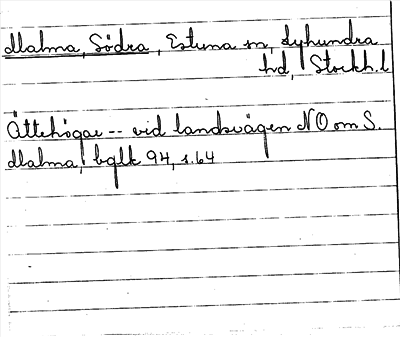 Malma, Södra, Estuna sn, Lyhundra
hd, Stockh. l
Ättehögar -- vid landsvägen NO om S.
Malma, bglk 94, s. 64